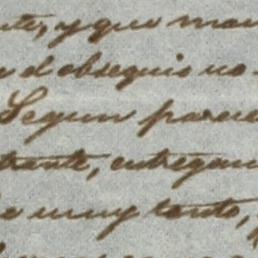 nte, y que man
el obsequio no
Segun parec
trante, entregan
e muy tonto,